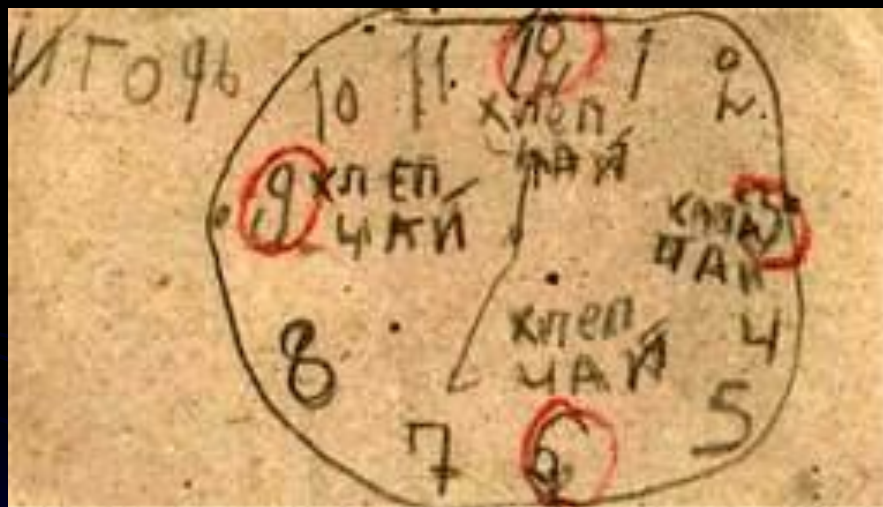 ИГОРЬ
10 11 12 1 2
ХЛЕП
ЧАЙ
9 ХЛЕП
ЧАЙ
3
ЧАЙ
8
ХЛЕП
ЧАЙ
4
7 6 5